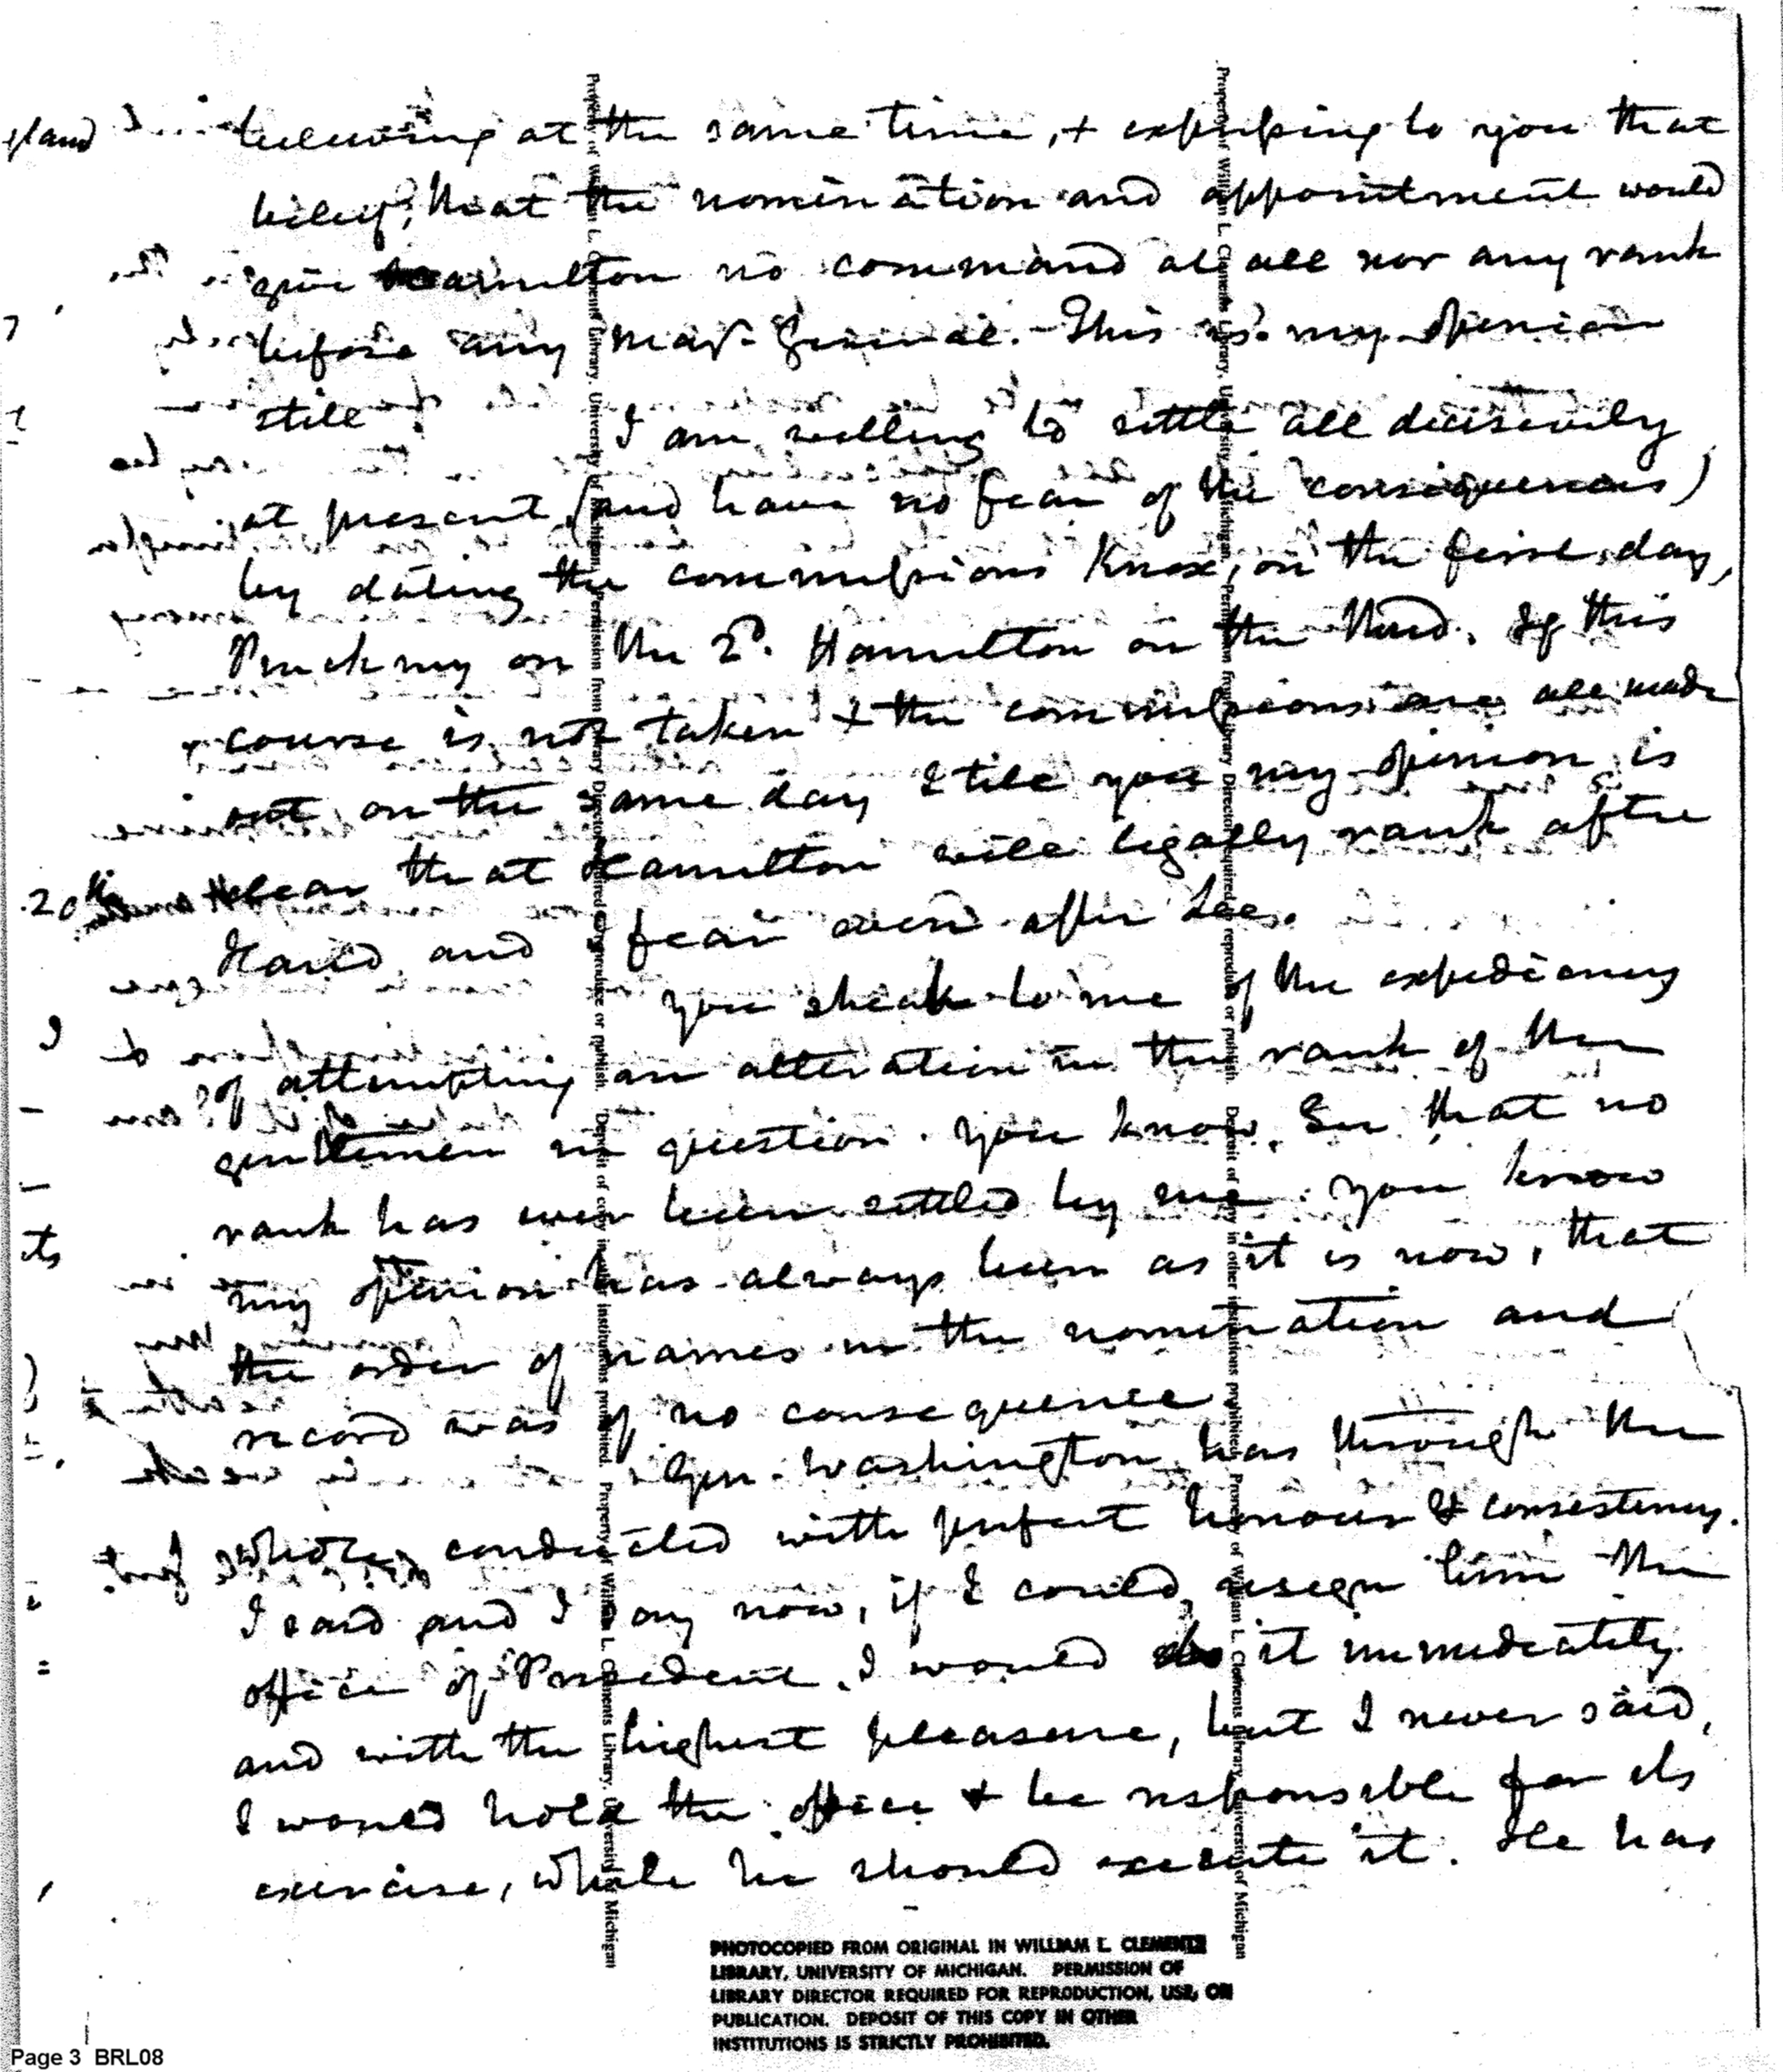 believing at the same time, + expressing to you that
belief, that the nomination and appointment would
give Hamilton no command at all nor any rank
before any Maj- General. - This is my opinion
still I am willing to settle all decisively
at present (and have no fear of the consequences)
by dating the commissions Knox, on the first day,
Pinckney on the 2d. Hamilton on the third. If this
course is not taken & the commissions are all made
out on the same day I tell you my opinion is
clear that Hamilton will legally rank after
Hand and fear even after Lee.
You speak to me of the expediency
of attempting an alteration in the rank of the
gentlemen in question. You know, Sir that no
rank has ever been settled by me. You know
my opinion has always been as it is now, that
the order of names in the nomination and
record was of no consequence
Gen. Washington has through the
whole conducted with perfect honour & consistency.
I said and I say now, if I could resign him the
office of President, I would do it immediately
and with the highest pleasure, but I never said,
I would hold the office + be responsible for its
exercise, while he should execute it. He has
Property of William L. Clements Library, University of Michigan. Permission from Library Director required to reproduce or publish. Deposit of copy in other institutions prohibited. Property of William L. Clements Library, University of Michigan
Property of William L. Clements Library, University of Michigan. Permission from Library Director required to reproduce or publish. Deposit of copy in other institutions prohibited. Property of William L. Clements Library, University of Michigan
20th
I
its
PHOTOCOPIED FROM ORIGINAL IN WILLIAM L. CLEMENTS
LIBRARY, UNIVERSITY OF MICHIGAN. PERMISSION OF
LIBRARY DIRECTOR REQUIRED FOR REPRODUCTION, USE, OR
PUBLICATION. DEPOSIT OF THIS COPY IN OTHER
INSTITUTIONS IS STRICTLY PROHIBITED.
Page 3 BRL08